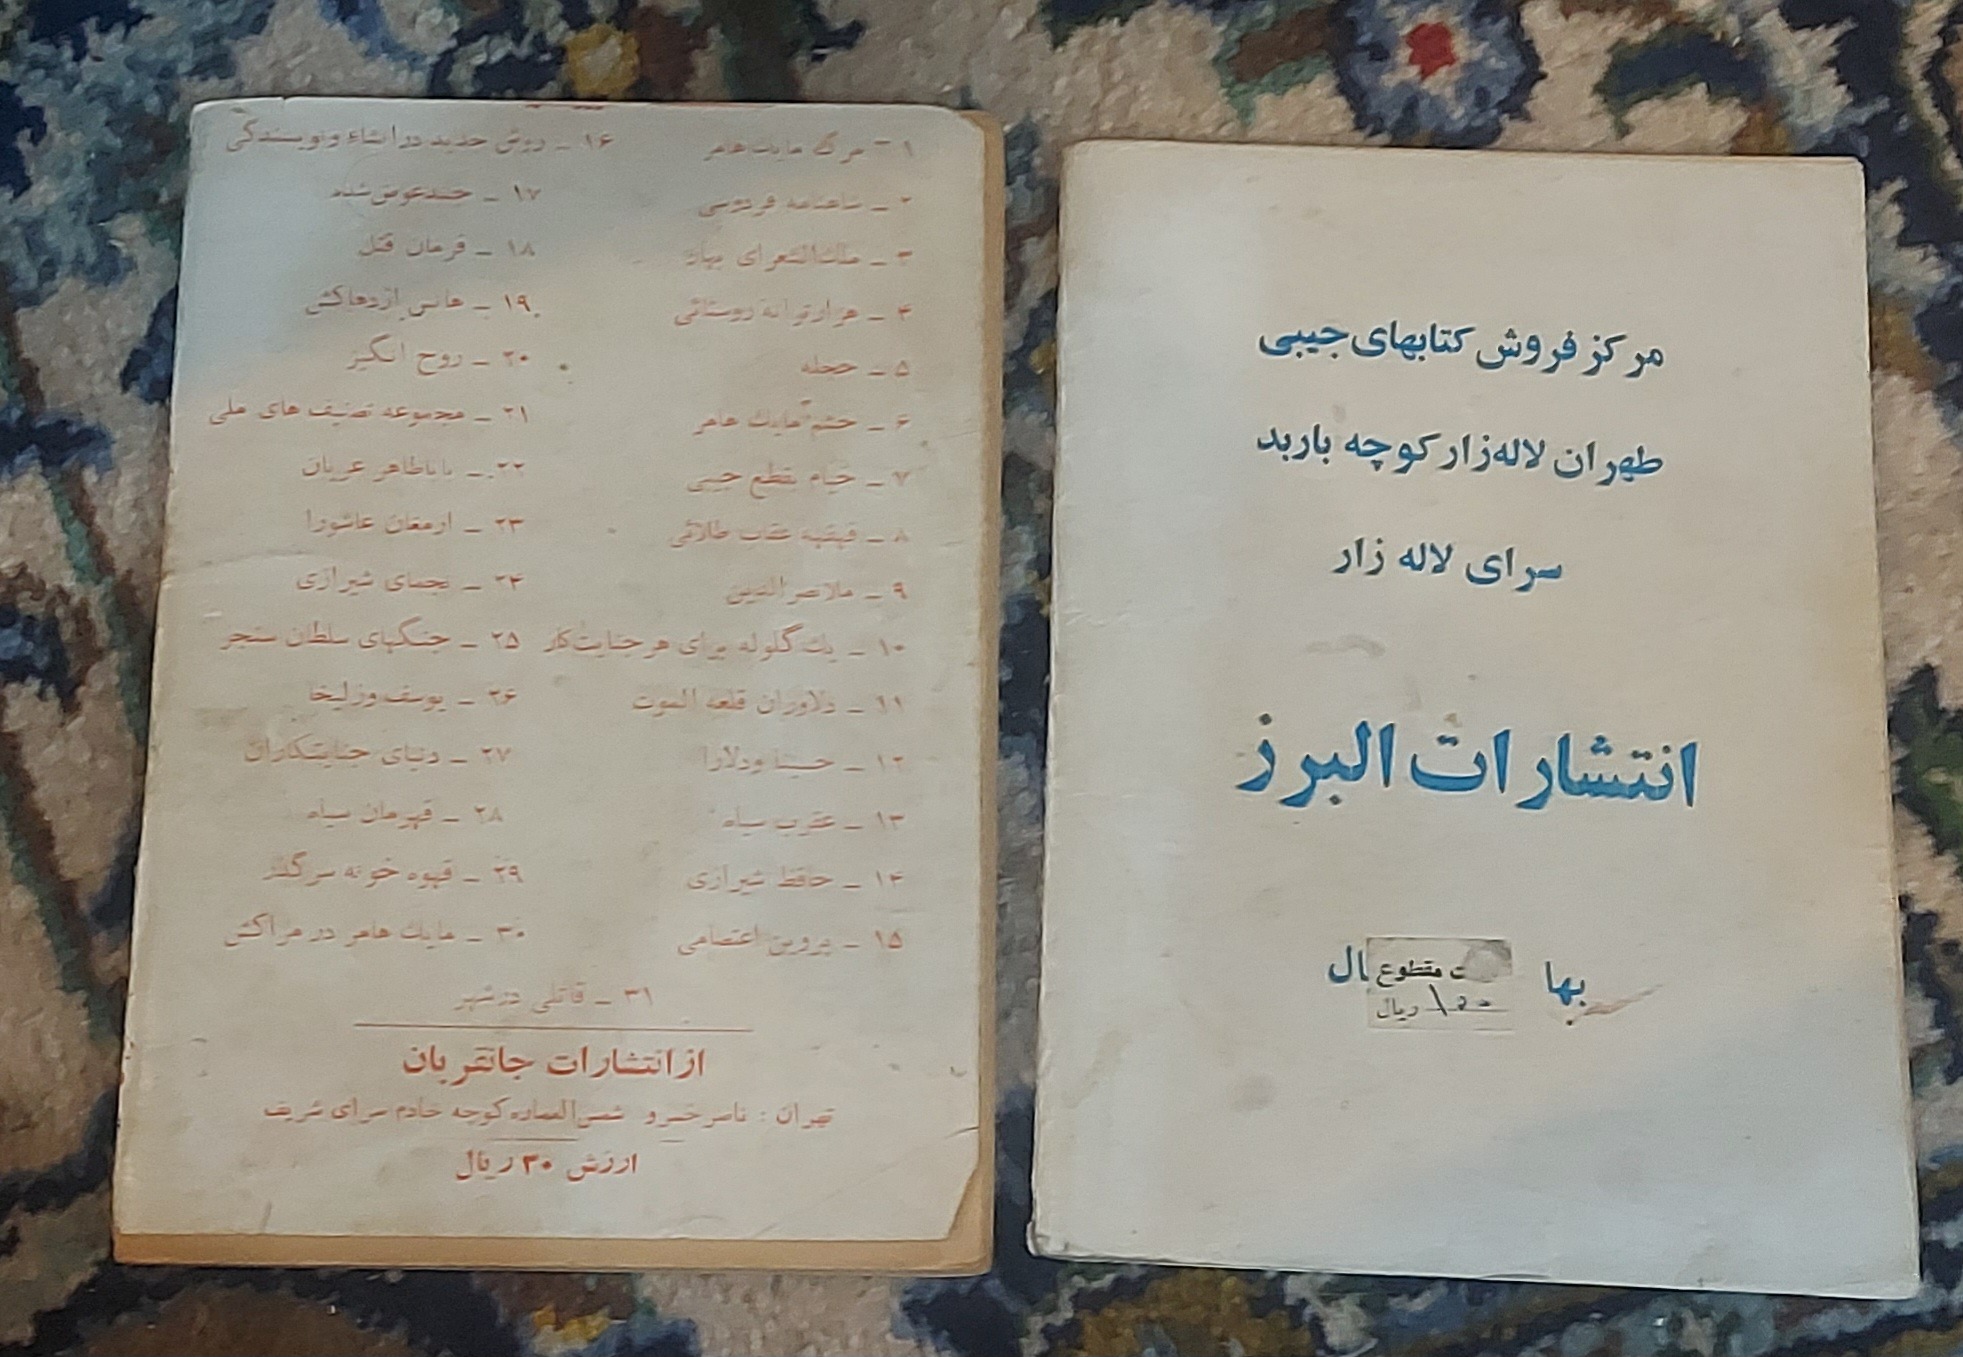 مرکز فروش کتابهای جیبی
طهران لاله‌زار کوچه باربد
سرای لاله زار
انتشارات البرز
بها
ال
ت مقطوع
۱۵۰ ریال
۱ - مرگ مایک هامر
۲ - شاهنامه فردوسی
۳ - ملک‌الشعرای بهار
۴ - هزار ترانه روستائی
۵ - حجله
۶ - خشم مایک هامر
۷ - خیام بقطع جیبی
۸ - قهقهه عقاب طلائی
۹ - ملانصرالدین
۱۰ - یک گلوله برای هر جنایت‌کار
۱۱ - دلاوران قلعه الموت
۱۲ - حسینا و دلارا
۱۳ - عقرب سیاه
۱۴ - حافظ شیرازی
۱۵ - پروین اعتصامی
۱۶ - روش جدید در انشاء و نویسندگی
۱۷ - جسد عوض شده
۱۸ - فرمان قتل
۱۹ - هانس اژدهاکش
۲۰ - روح انگیز
۲۱ - مجموعه تصنیف های ملی
۲۲ - باباطاهر عریان
۲۳ - ارمغان عاشورا
۲۴ - نجمای شیرازی
۲۵ - جنگهای سلطان سنجر
۲۶ - یوسف و زلیخا
۲۷ - دنیای جنایتکاران
۲۸ - قهرمان سیاه
۲۹ - قهوه خونه سر گذر
۳۰ - مایک هامر در مراکش
۳۱ - قاتلی در شهر
از انتشارات جانقربان
تهران : ناصر خسرو شمس‌العماره کوچه خادم سرای شریف
ارزش ۳۰ ریال